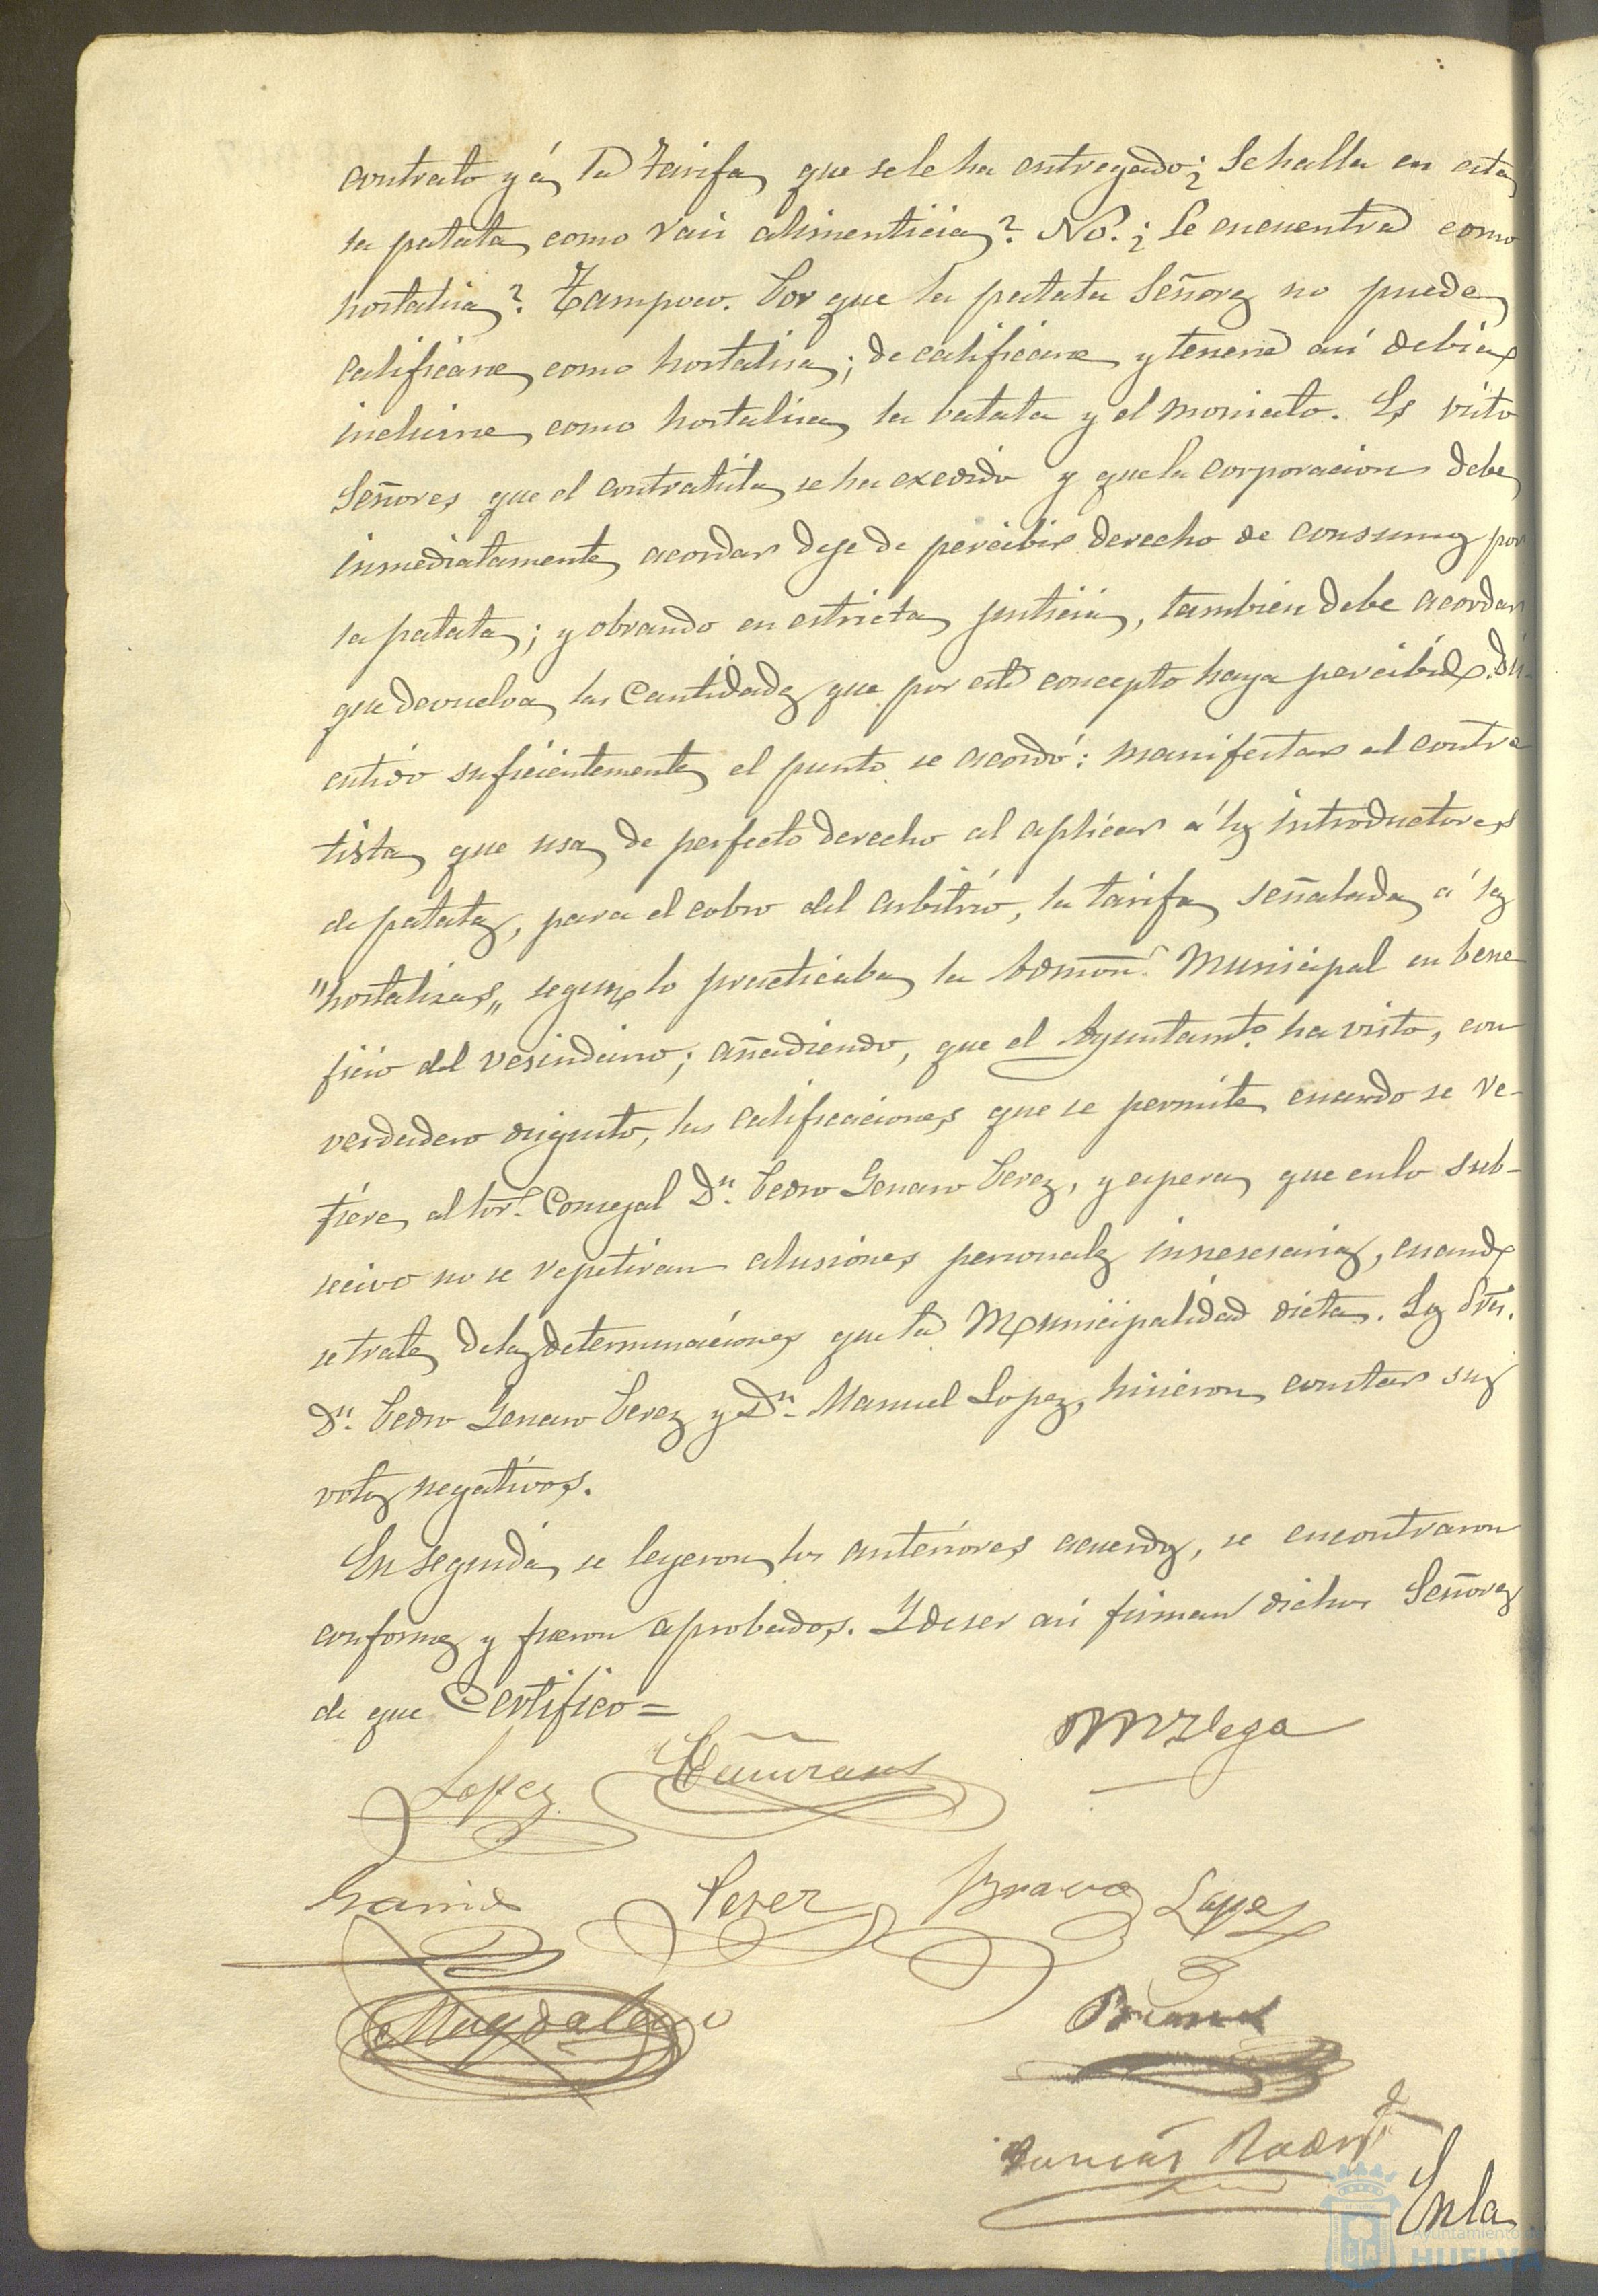 contrato y á la tarifa que se le ha entregado; ¿Se halla en esta
la patata como raiz alimenticia? No. ¿Se encuentra como
hortaliza? Tampoco. Por que la patata Señores no puede
calificarse como hortaliza; de calificarse y tenerse así debía
incluirse como hortaliza la batata y el moniato. Es visto
Señores que el contratista se ha excedido y que la corporacion debe
inmediatamente acordar deje de percibir derecho de consumos por
la patata; y obrando en estricta justicia, tambien debe acordar
que devuelva las cantidades que por este concepto haya percibido. Dis-
cutido suficientemente el punto se acordó: manifestar al contra
tista que usa de perfecto derecho al aplicar á los introductores
de patatas, para el cobro del arbitrio, la tarifa señalada á las
"hortalizas" segun lo practicaba la Admon. Municipal en bene
ficio del vesindario; añadiendo, que el Ayuntamto. ha visto, con
verdadero disgusto, las calificaciones que se permite cuando se re-
fiere al Sor. Consejal Dn. Pedro Genaro Perez, y espera que en lo sub-
secivo no se repetiran alusiones personales innesesarias, cuando
se trate de las determinaciones que la Municipalidad dicta. Los Sres.
Dn. Pedro Genaro Perez y Dn. Manuel Lopez, hicieron constar sus
votos negativos.
En seguida se leyeron los anteriores acuerdos, se encontraron
conformes y fueron aprobados. Y de ser así firman dichos Señores
de que Certifico=
Lopez
Garcia Perez Bravo Lopez
Magdaleno
Rodrz
En la
Ayuntamiento
HUELVA